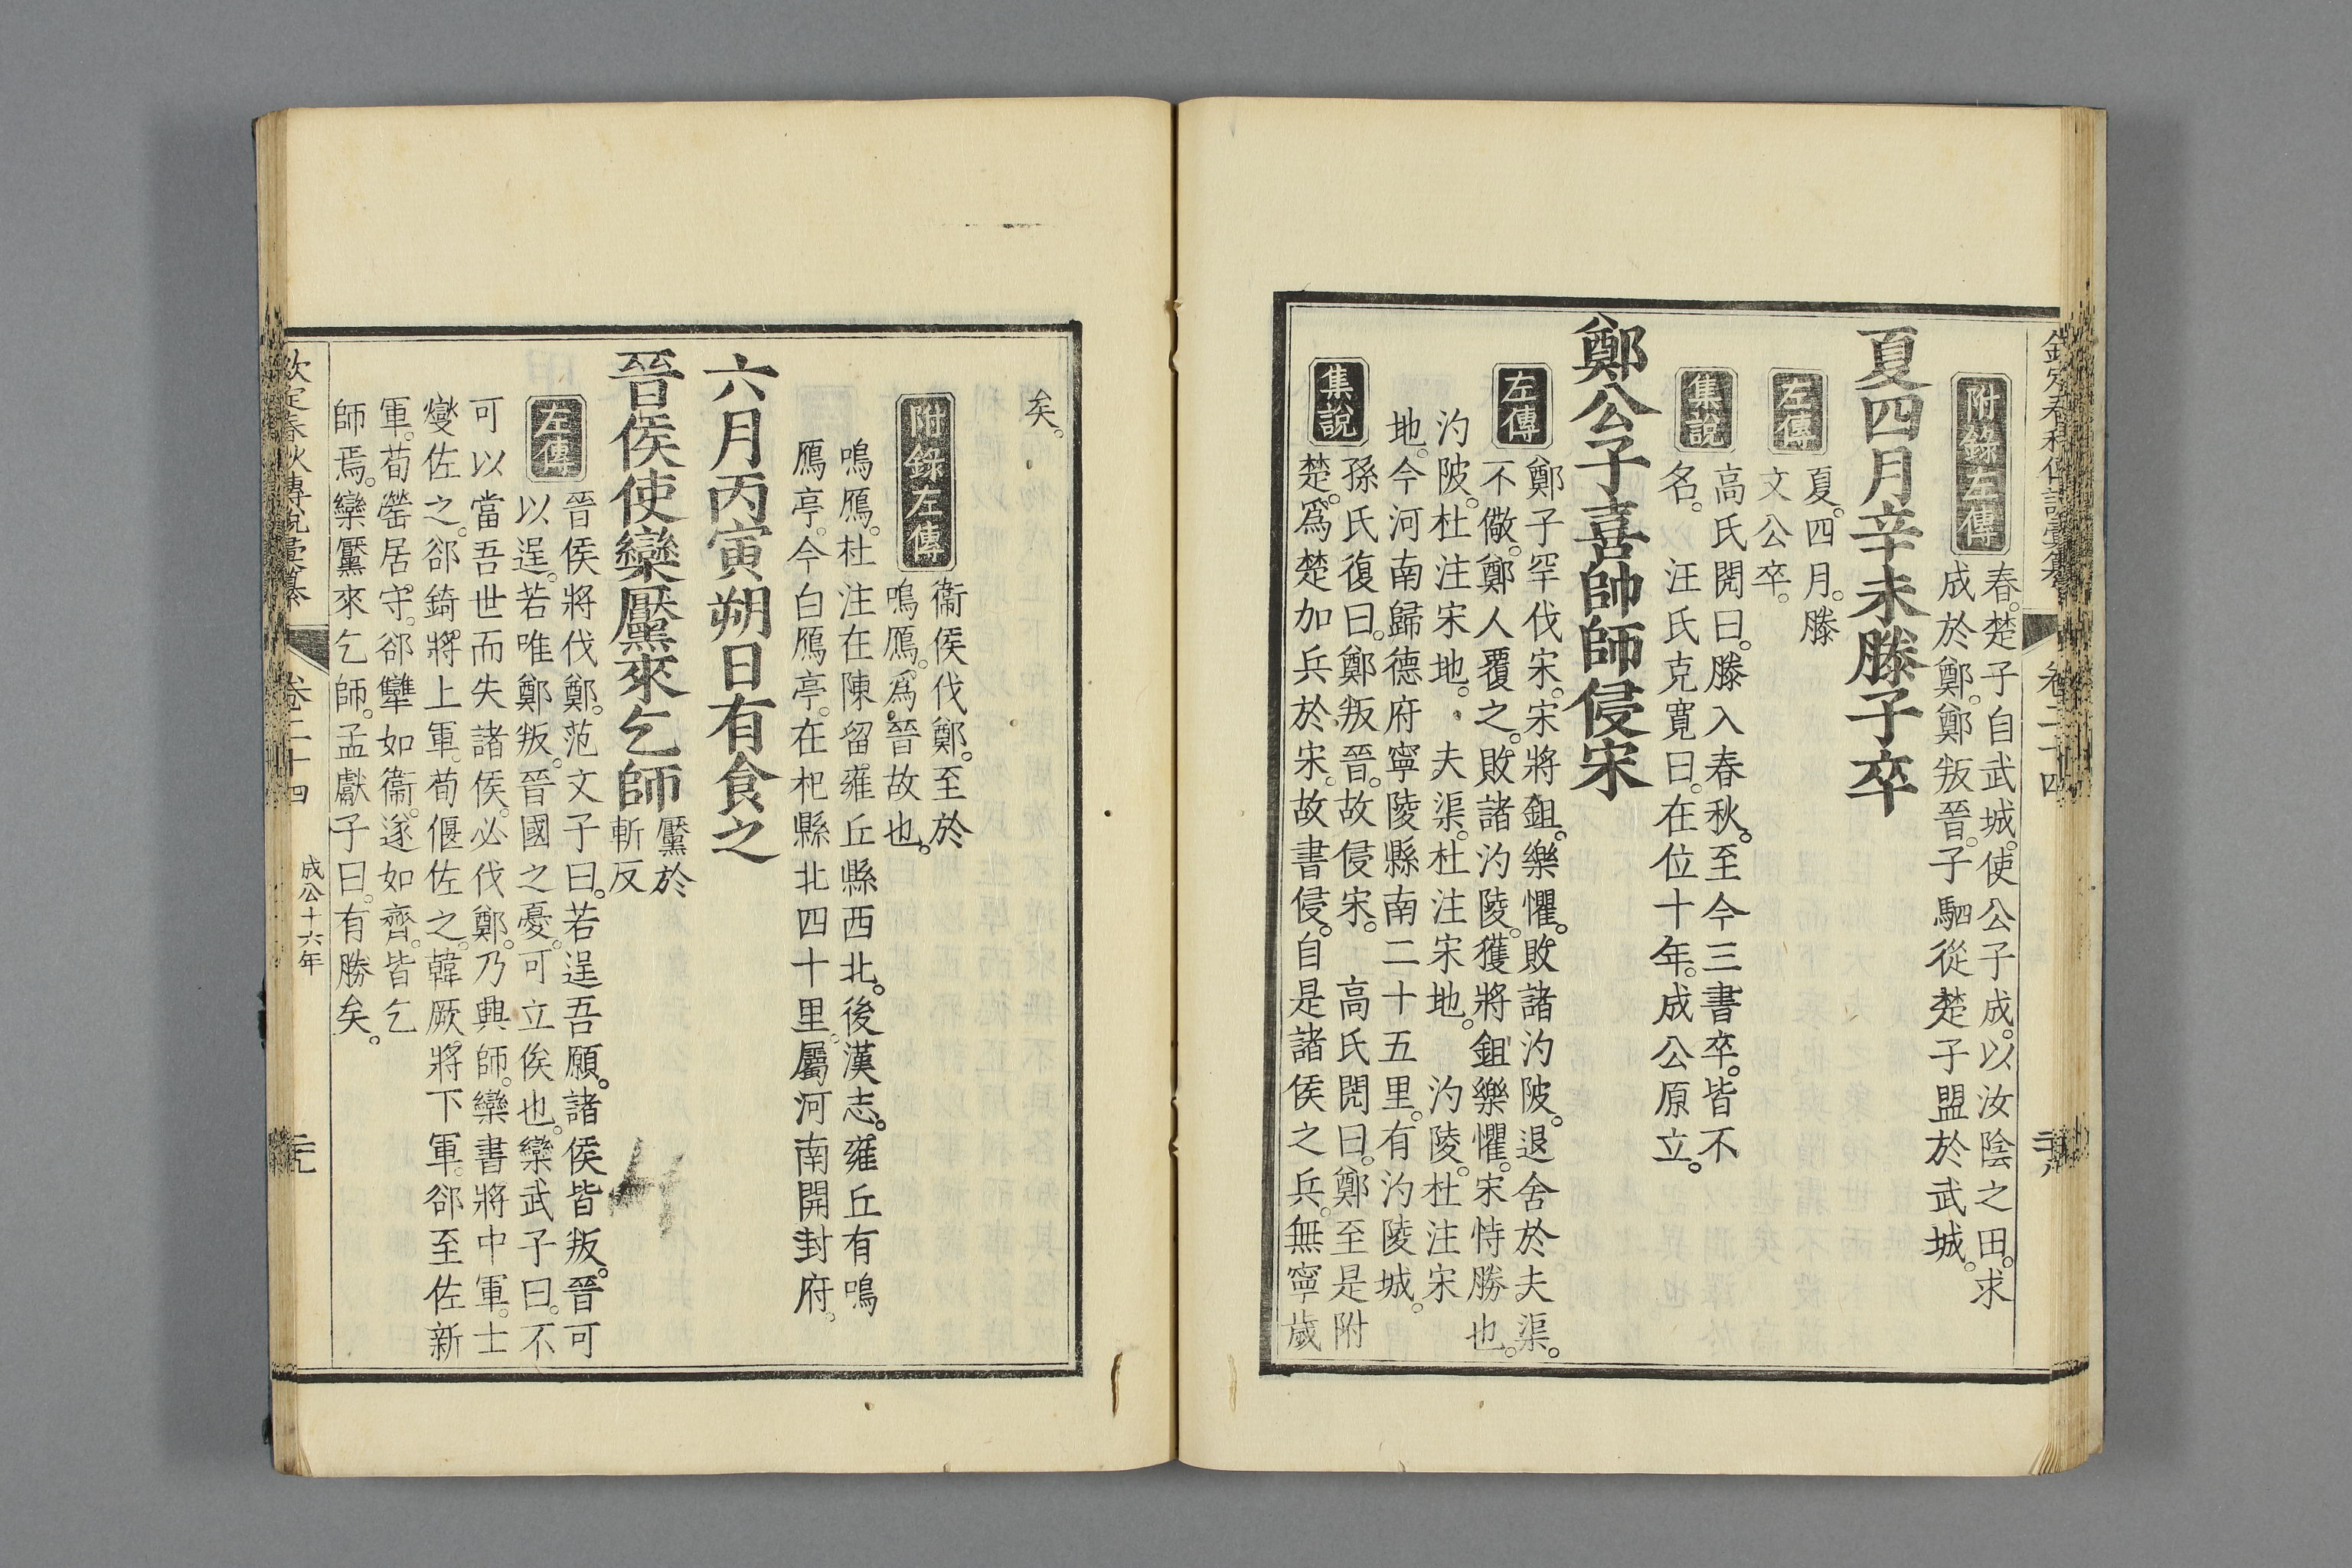 欽定春秋傳說彙纂 卷二十四
附錄左傳
春。楚子自武城。使公子成。以汝陰之田。求
成於鄭。鄭叛晉。子駟從楚子盟於武城。
夏四月辛未滕子卒
左傳
夏。四月。滕
文公卒。
集說
高氏閌曰。滕入春秋。至今三書卒。皆不
名。　汪氏克寬曰。在位十年。成公原立。
鄭公子喜帥師侵宋
左傳
鄭子罕伐宋。宋將鉏。樂懼。敗諸汋陂。退舍於夫渠。
不儆。鄭人覆之。敗諸汋陵。獲將鉏樂懼。宋恃勝也。
汋陂。杜注宋地。　夫渠。杜注宋地。　汋陵。杜注宋
地。今河南歸德府寧陵縣南二十五里。有汋陵城。
集說
孫氏復曰。鄭叛晉。故侵宋。　高氏閌曰。鄭至是附
楚。爲楚加兵於宋。故書侵。自是諸侯之兵。無寧歲
矣。
附錄左傳
衞侯伐鄭。至於
鳴鴈。爲晉故也。
鳴鴈。杜注在陳留雍丘縣西北。後漢志。雍丘有鳴
鴈亭。今白鴈亭。在杞縣北四十里。屬河南開封府。
六月丙寅朔日有食之
晉侯使欒黶來乞師
黶於
斬反
左傳
晉侯將伐鄭。范文子曰。若逞吾願。諸侯皆叛。晉可
以逞。若唯鄭叛。晉國之憂。可立俟也。欒武子曰。不
可以當吾世而失諸侯。必伐鄭。乃興師。欒書將中軍。士
燮佐之。郤錡將上軍。荀偃佐之。韓厥。將下軍。郤至佐新
軍。荀罃居守。郤犨如衞。遂如齊。皆乞
師焉。欒黶來乞師。孟獻子曰。有勝矣。
欽定春秋傳說彙纂 卷二十四 成公十六年 二九